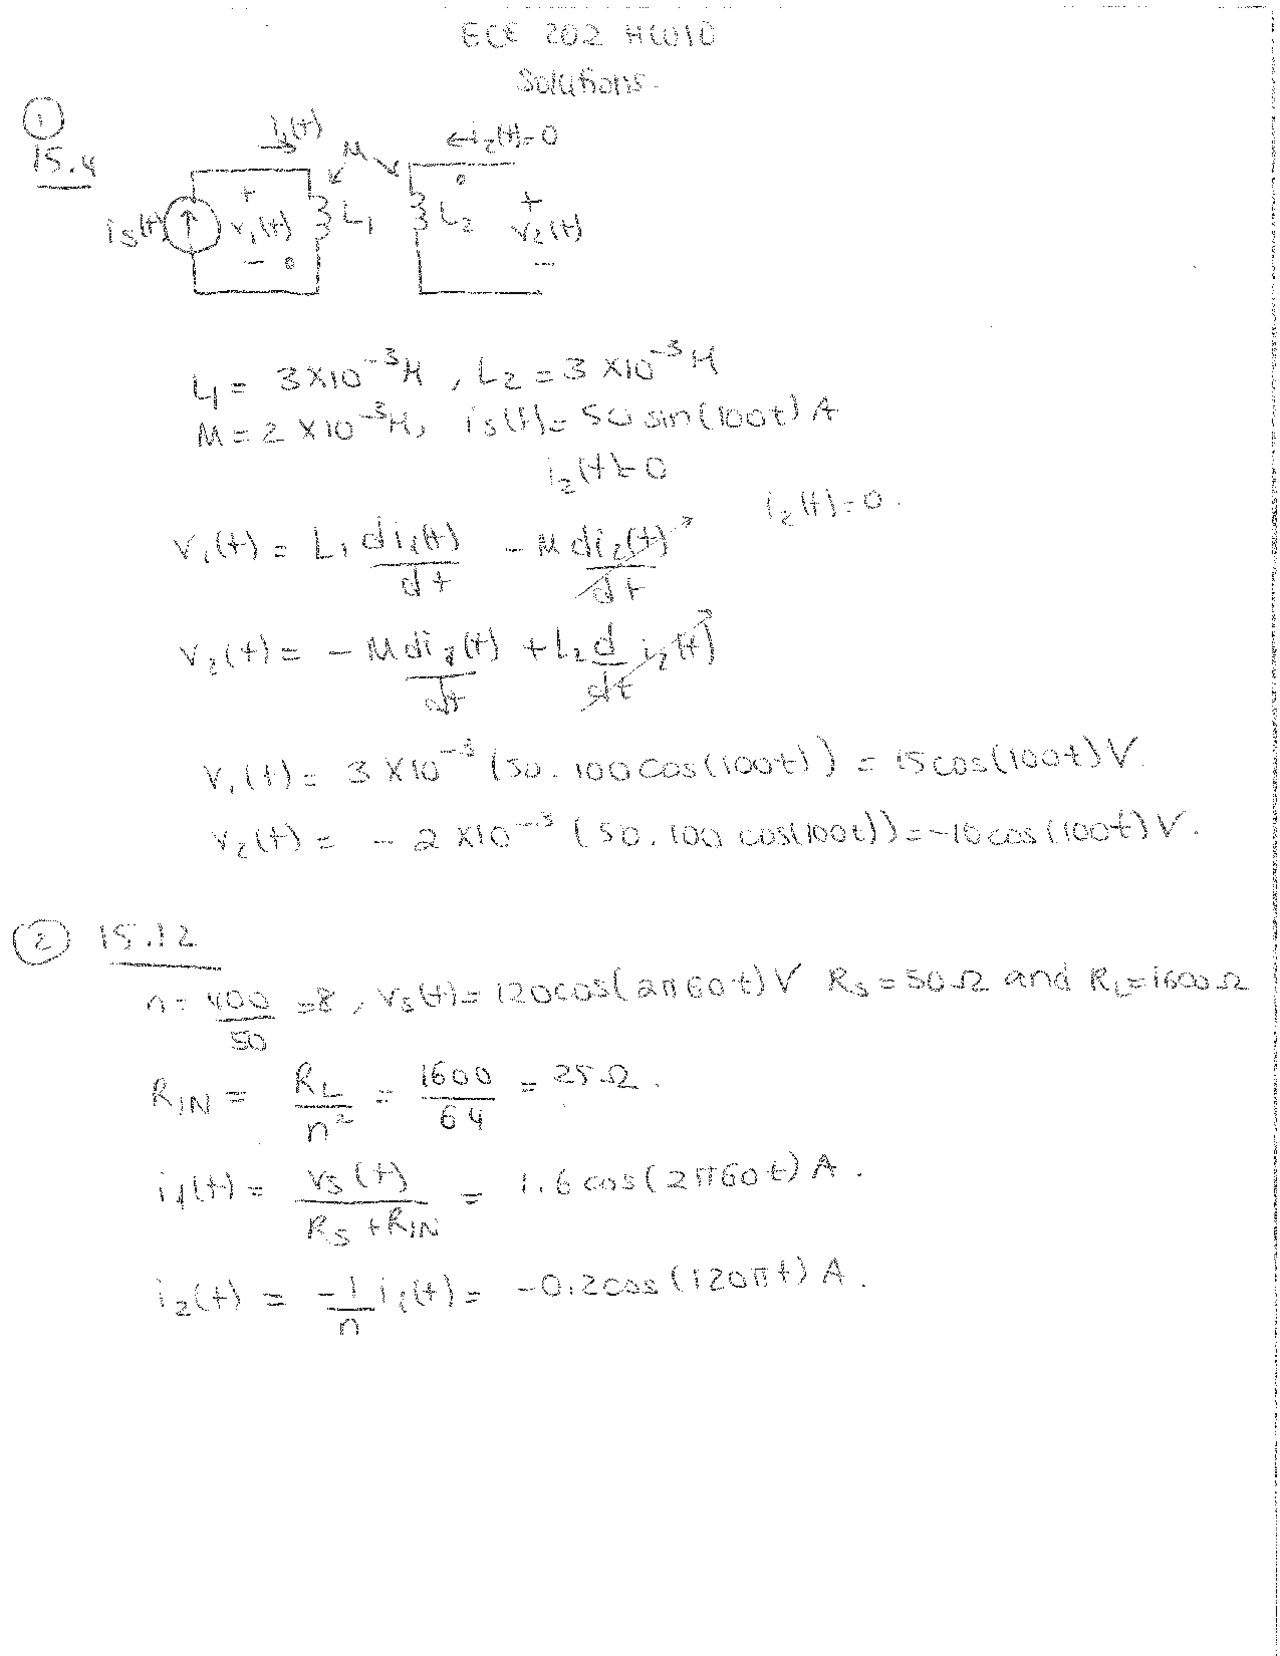 ECE 202 HW10
Solutions.
①
15.4
i₁(t) M ←i₂(t)=0
is(t) + v₁(t) - L₁ L₂ + v₂(t) -
L₁ = 3×10⁻³H , L₂ = 3×10⁻³H
M = 2×10⁻³H, is(t) = 50 sin(100t) A
i₂(t)=0
i₂(t)=0.
v₁(t) = L₁ di₁(t)/dt - M di₂(t)/dt
v₂(t) = - M di₁(t)/dt + L₂ d/dt i₂(t)
v₁(t) = 3×10⁻³ (50.100 cos(100t)) = 15cos(100t) V.
v₂(t) = - 2×10⁻³ (50.100 cos(100t)) = -10cos(100t) V.
② 15.12
n = 400/50 = 8 , vs(t) = 120cos(2π60t) V Rs = 50Ω and RL = 1600Ω
RIN = RL/n² = 1600/64 = 25Ω.
i₁(t) = vs(t)/(Rs + RIN) = 1.6 cos(2π60t) A.
i₂(t) = -1/n i₁(t) = -0.2cos(120πt) A.